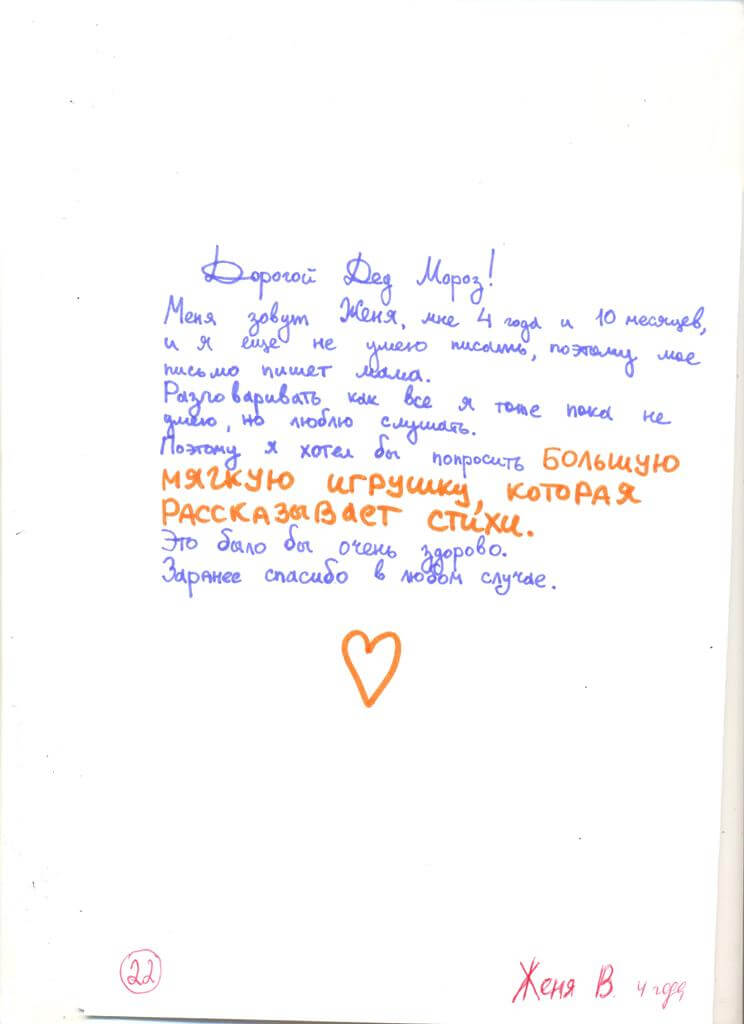 Дорогой Дед Мороз!
Меня зовут Женя, мне 4 года и 10 месяцев,
и я еще не умею писать, поэтому мое
письмо пишет мама.
Разговаривать как все я тоже пока не
умею, но люблю слушать.
Поэтому я хотел бы попросить БОЛЬШУЮ
МЯГКУЮ ИГРУШКУ, КОТОРАЯ
РАССКАЗЫВАЕТ СТИХИ.
Это было бы очень здорово.
Заранее спасибо в любом случае.
22
Женя В. 4 года